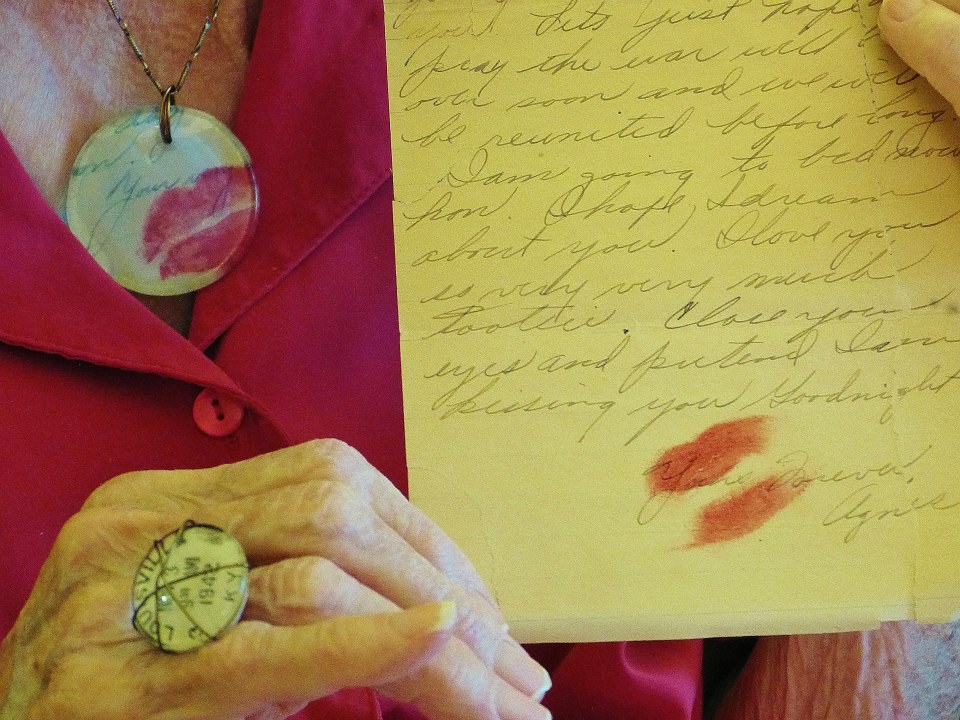 you! Lets just hope
pray the war will
over soon and we will
be reunited before long.
I am going to bed now
hon. I hope I dream
about you. I love you
so very very much
Tootsie. Close your
eyes and pretend I am
kissing you Goodnight
Yours Forever,
Agnes
on.
Yours
LOUISVILLE
3
1942
KY